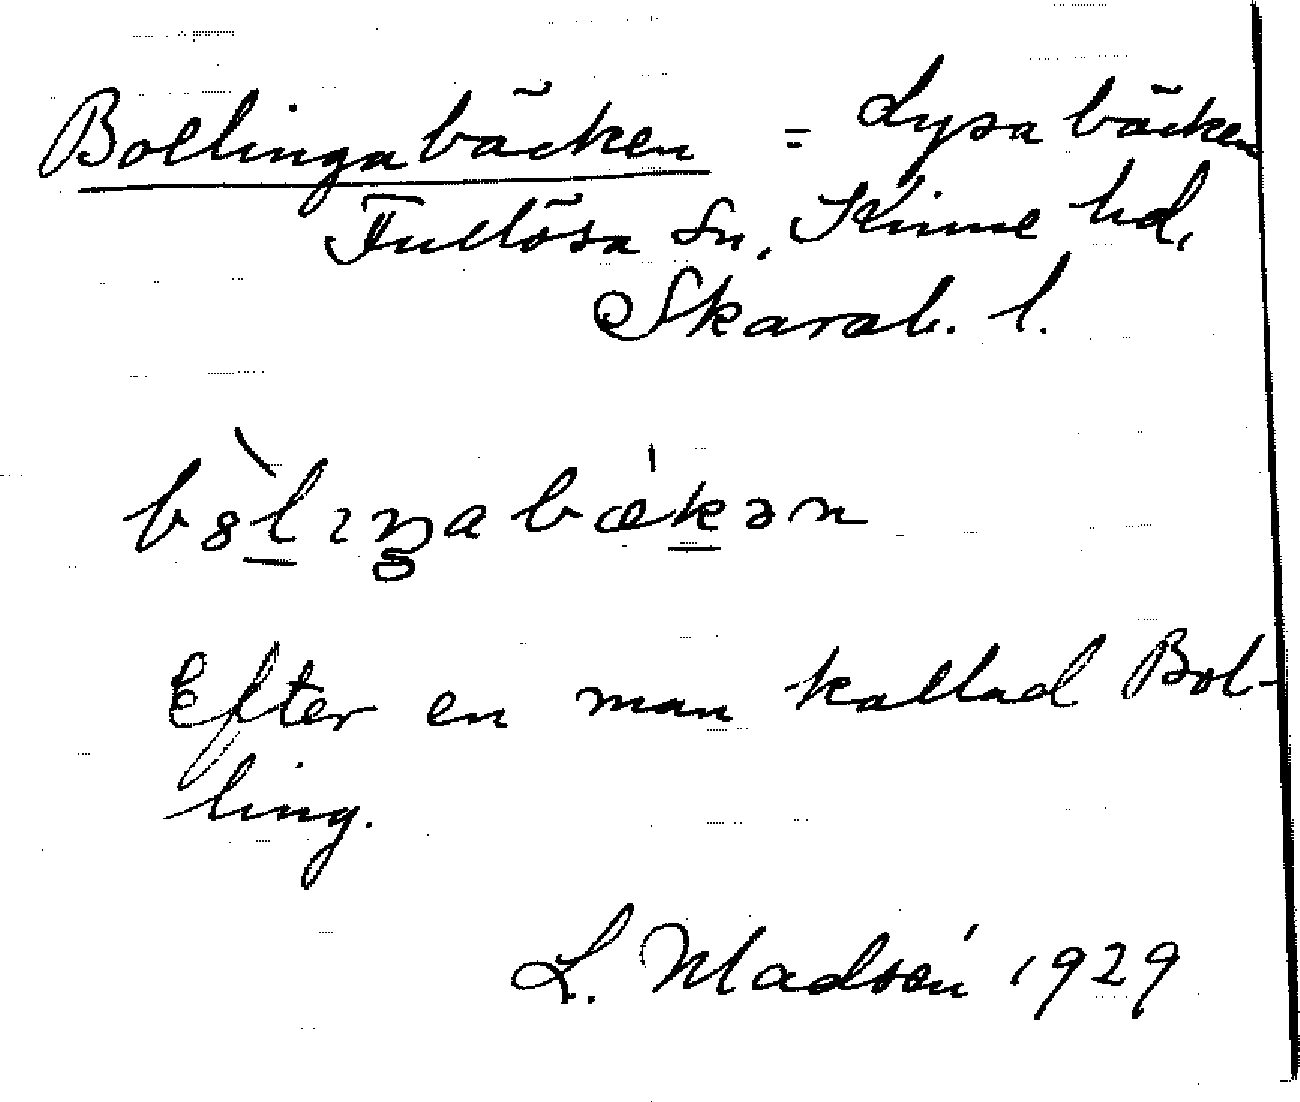 Bollingabäcken = Lysabäcken
Fullösa sn, Kinne hd,
Skarab. l.
Efter en man kallad Bol-
ling.
L. Madsén 1929